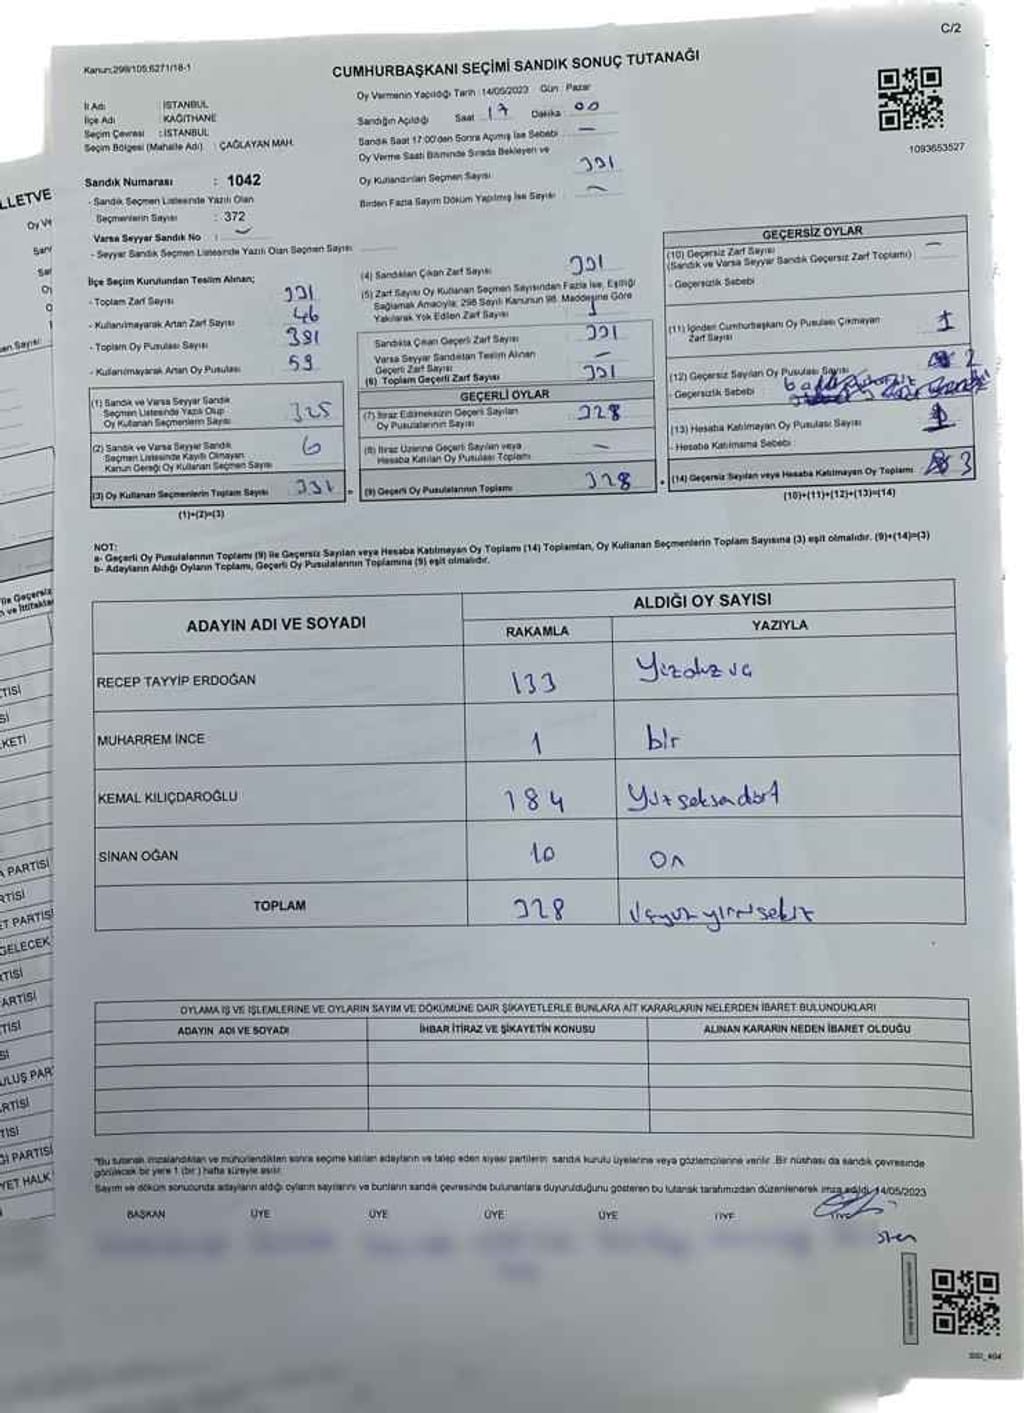 C/2
Kanun:298/105:6271/18-1
CUMHURBAŞKANI SEÇİMİ SANDIK SONUÇ TUTANAĞI
İl Adı : İSTANBUL
İlçe Adı : KAĞITHANE
Seçim Çevresi : İSTANBUL
Seçim Bölgesi (Mahalle Adı) : ÇAĞLAYAN MAH.
Sandık Numarası : 1042
- Sandık Seçmen Listesinde Yazılı Olan
Seçmenlerin Sayısı : 372
Varsa Seyyar Sandık No : -
- Seyyar Sandık Seçmen Listesinde Yazılı Olan Seçmen Sayısı
Oy Vermenin Yapıldığı Tarih : 14/05/2023 Gün : Pazar
Sandığın Açıldığı Saat 17 Dakika 00
Sandık Saat 17:00'den Sonra Açımış İse Sebebi -
Oy Verme Saati Bitiminde Sırada Bekleyen ve
Oy Kullandırılan Seçmen Sayısı 331
Birden Fazla Sayım Döküm Yapılmış İse Sayısı -
1093653527
İlçe Seçim Kurulundan Teslim Alınan;
- Toplam Zarf Sayısı 331
- Kullanılmayarak Artan Zarf Sayısı 46
- Toplam Oy Pusulası Sayısı 391
- Kullanılmayarak Artan Oy Pusulası 59
(1) Sandık ve Varsa Seyyar Sandık
Seçmen Listesinde Yazılı Olup
Oy Kullanan Seçmenlerin Sayısı 325
(2) Sandık ve Varsa Seyyar Sandık
Seçmen Listesinde Kayıtlı Olmayan
Kanun Gereği Oy Kullanan Seçmen Sayısı 6
(3) Oy Kullanan Seçmenlerin Toplam Sayısı 331
(1)+(2)=(3)
(4) Sandıktan Çıkan Zarf Sayısı 331
(5) Zarf Sayısı Oy Kullanan Seçmen Sayısından Fazla İse, Eşitliği
Sağlamak Amacıyla; 298 Sayılı Kanunun 98. Maddesine Göre
Yakılarak Yok Edilen Zarf Sayısı
Sandıkta Çıkan Geçerli Zarf Sayısı 331
Varsa Seyyar Sandıktan Teslim Alınan
Geçerli Zarf Sayısı -
(6) Toplam Geçerli Zarf Sayısı 331
GEÇERLİ OYLAR
(7) İtiraz Edilmeksizin Geçerli Sayılan
Oy Pusulalarının Sayısı 328
(8) İtiraz Üzerine Geçerli Sayılan veya
Hesaba Katılan Oy Pusulası Toplamı -
(9) Geçerli Oy Pusulalarının Toplamı 328
GEÇERSİZ OYLAR
(10) Geçersiz Zarf Sayısı -
(Sandık ve Varsa Seyyar Sandık Geçersiz Zarf Toplamı)
- Geçersizlik Sebebi
(11) İçinden Cumhurbaşkanı Oy Pusulası Çıkmayan
Zarf Sayısı 1
(12) Geçersiz Sayılan Oy Pusulası Sayısı 2
- Geçersizlik Sebebi
(13) Hesaba Katılmayan Oy Pusulası Sayısı
- Hesaba Katılmama Sebebi :
(14) Geçersiz Sayılan veya Hesaba Katılmayan Oy Toplamı 3
(10)+(11)+(12)+(13)=(14)
NOT:
a- Geçerli Oy Pusulalarının Toplamı (9) ile Geçersiz Sayılan veya Hesaba Katılmayan Oy Toplamı (14) Toplamları, Oy Kullanan Seçmenlerin Toplam Sayısına (3) eşit olmalıdır. (9)+(14)=(3)
b- Adayların Aldığı Oyların Toplamı, Geçerli Oy Pusulalarının Toplamına (9) eşit olmalıdır.
ADAYIN ADI VE SOYADI ALDIĞI OY SAYISI
RAKAMLA YAZIYLA
RECEP TAYYİP ERDOĞAN 133
MUHARREM İNCE 1 bir
KEMAL KILIÇDAROĞLU 184 Yüzseksendört
SİNAN OĞAN 10 On
TOPLAM 328
OYLAMA İŞ VE İŞLEMLERİNE VE OYLARIN SAYIM VE DÖKÜMÜNE DAİR ŞİKAYETLERLE BUNLARA AİT KARARLARIN NELERDEN İBARET BULUNDUKLARI
ADAYIN ADI VE SOYADI İHBAR İTİRAZ VE ŞİKAYETİN KONUSU ALINAN KARARIN NEDEN İBARET OLDUĞU
"Bu tutanak imzalandıktan ve mühürlendikten sonra seçime katılan adayların ve talep eden siyasi partilerin sandık kurulu üyelerine veya gözlemcilerine verilir. Bir nüshası da sandık çevresinde
görülecek bir yere 1 (bir) hafta süreyle asılır.
Sayım ve döküm sonucunda adayların aldığı oyların sayılarını ve bunların sandık çevresinde bulunanlara duyurulduğunu gösteren bu tutanak tarafımızdan düzenlenerek imza edildi. 14/05/2023
BAŞKAN ÜYE ÜYE ÜYE ÜYE ÜYE ÜYE
LLETVE
PARTİSİ
GELECEK
ULUŞ PAR
YET HALK